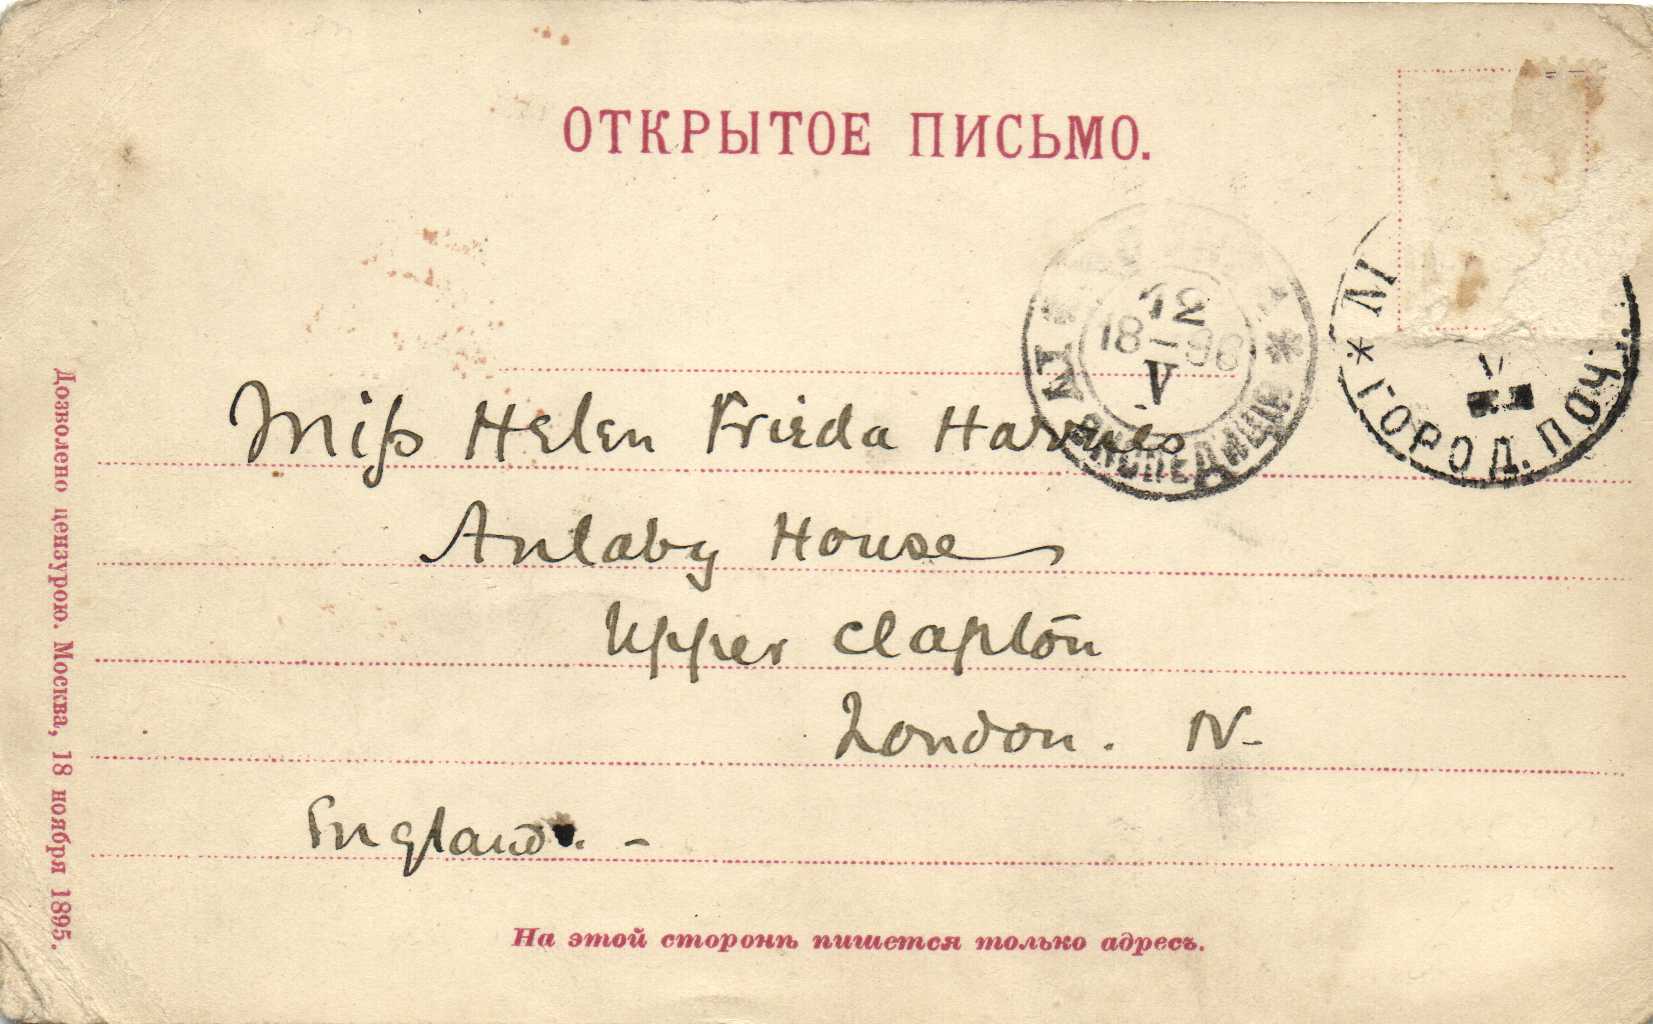 ОТКРЫТОЕ ПИСЬМО.
12
18–96
V
ЭКСПЕДИЦІЯ *
* М
ГОРОД. ПОЧ.
Miss Helen Frieda
Anlaby House
Upper Clapton
London. N-
England. -
На этой сторонѣ пишется только адресъ.
Дозволено цензурою. Москва, 18 ноября 1895.